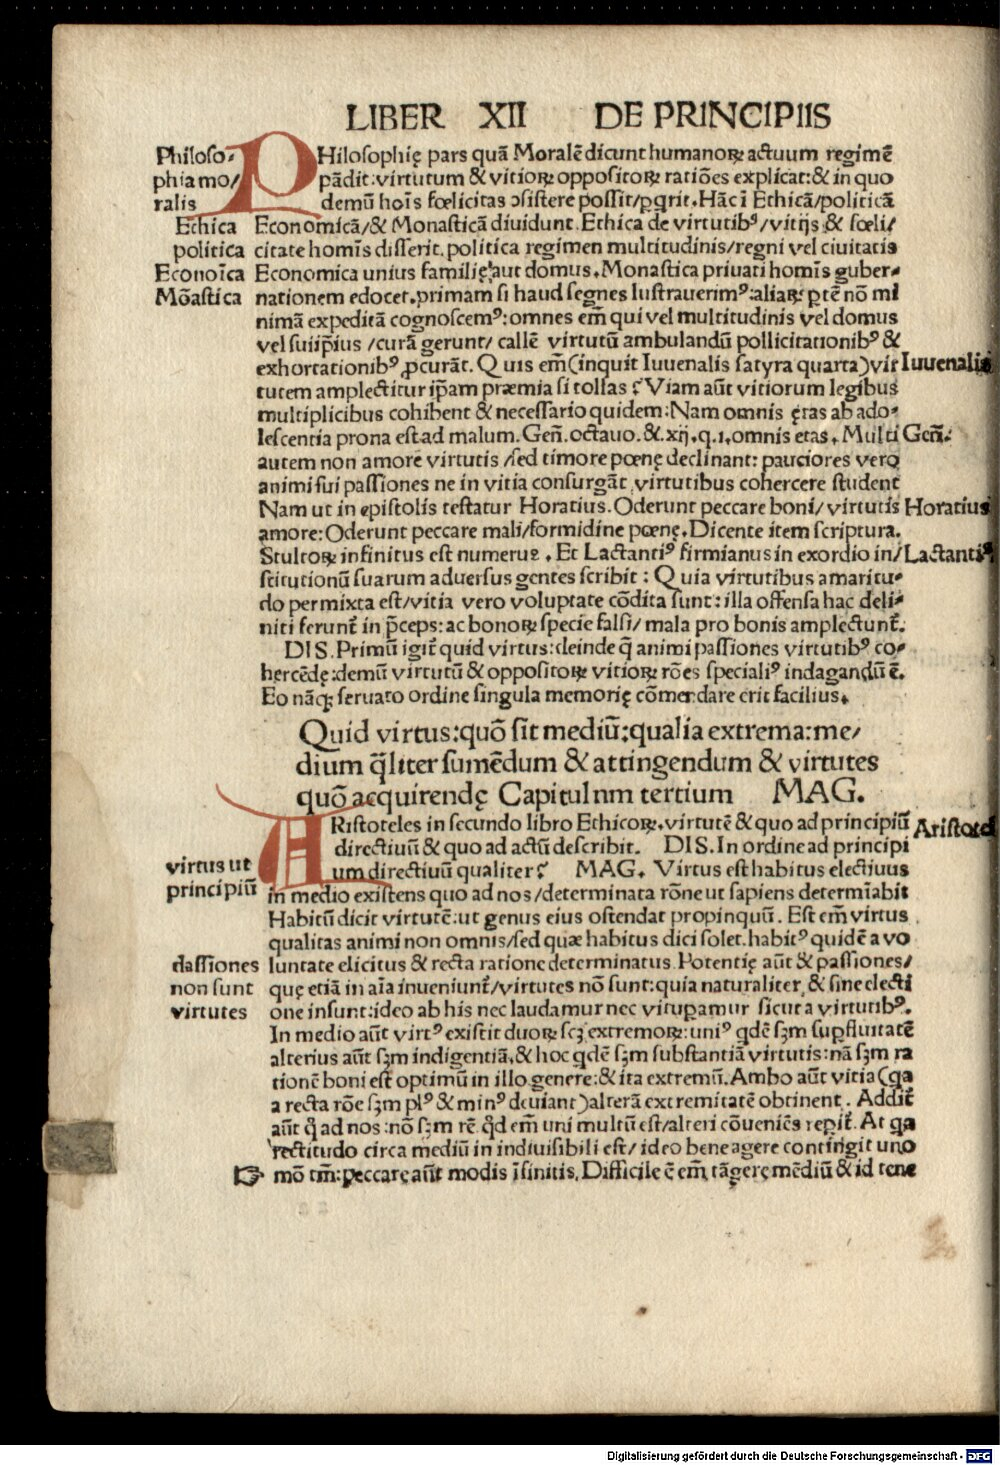 LIBER XII DE PRINCIPIIS
Philoso⸗
phia mo/
ralis
Ethica
politica
Econoīca
Mōastica
PHilosophię pars quā Moralē dicunt humanoꝝ actuum regimē
pādit: virtutum & vitioꝝ oppositoꝝ ratiōes explicat: & in quo
demū hoīs fœlicitas ↄsistere possit/ pqrit. Hāc ī Ethicā/ politicā
Economicā/ & Monasticā diuidunt. Ethica de virtutibꝰ/ vitijs & fœli/
citate homīs disserit. politica regimen multitudinis/ regni vel ciuitatis
Economica unius familię aut domus. Monastica priuati homīs guber⸗
nationem edocet. primam si haud segnes lustrauerimꝰ: aliaꝝ ptē nō mi
nimā expeditā cognoscemꝰ: omnes em̄ qui vel multitudinis vel domus
vel sui ip̄ius / curā gerunt/ callē virtutū ambulandū pollicitationibꝰ &
exhortationibꝰ ꝓcurāt. Quis em̄ (inquit Iuuenalis satyra quarta) vir
tutem amplectitur ip̄am præmia si tollas ? Viam aūt vitiorum legibus
multiplicibus cohibent & necessario quidem: Nam omnis ętas ab ado⸗
lescentia prona est ad malum. Geñ. octauo. &. xij. q. 1. omnis etas. Multi
autem non amore virtutis / sed timore pœnę declinant: pauciores vero
animi sui passiones ne in vitia consurgāt virtutibus cohercere student
Nam ut in epistolis testatur Horatius. Oderunt peccare boni/ virtutis
amore: Oderunt peccare mali/ formidine pœnę. Dicente item scriptura.
Stultoꝝ infinitus est numerus. Et Lactantiꝰ firmianus in exordio in/
stitutionū suarum aduersus gentes scribit : Quia virtutibus amaritu⸗
do permixta est/ vitia vero voluptate cōdita sunt: illa offensa hac deli⸗
niti ferunt̄ in p̄ceps: ac bonoꝝ specie falsi/ mala pro bonis amplectunt̄.
DIS. Primū igit̄ quid virtus: deinde q̄ animi passiones virtutibꝰ co⸗
hercēdę: demū virtutū & oppositoꝝ vitioꝝ rōes specialiꝰ indagandū ē.
Eo nāqꝫ seruato ordine singula memorię cōmendare erit facilius.
Iuuenalis
Geñ.
Horatius
Lactantiꝰ
Quid virtus: quō sit mediū: qualia extrema: me/
dium q̄liter sumēdum & attingendum & virtutes
quō acquirendę Capitulum tertium MAG.
ARistoteles in secundo libro Ethicoꝝ. virtutē & quo ad principiū
directiuū & quo ad actū describit. DIS. In ordine ad principi
um directiuū qualiter? MAG. Virtus est habitus electiuus
in medio existens quo ad nos/ determinata rōne ut sapiens determīabit
Habitū dicit virtutē: ut genus eius ostendat propinquū. Est em̄ virtus
qualitas animi non omnis/ sed quæ habitus dici solet. habitꝰ quidē a vo
luntate elicitus & recta ratione determinatus. Potentię aūt & passiones/
quę etiā in aīa inueniunt̄/ virtutes nō sunt: quia naturaliter & sine electi
one insunt: ideo ab his nec laudamur nec vitupamur sicut a virtutibꝰ.
In medio aūt virtꝰ existit duoꝝ scꝫ extremoꝝ: uniꝰ qdē sꝫm supfluitatē
alterius aūt sꝫm indigentiā. & hoc qdē sꝫm substantiā virtutis: nā sꝫm ra
tionē boni est optimū in illo genere: & ita extremū. Ambo aūt vitia (qa
a recta rōe sꝫm plꝰ & minꝰ deuiant) alterā extremitatē obtinent. Addit̄
aūt q̄ ad nos: nō sꝫm rē. qd̄ em̄ uni multū est/ alteri cōueniēs repit̄. At qa
rectitudo circa mediū in indiuisibili est/ ideo bene agere contingit uno
☞ mō tm̄: peccare aūt modis īfinitis. Difficile ē em̄ tāgere mēdiū & id tene
Aristotel
virtus ut
principiū
dassiones
non sunt
virtutes
Digitalisierung gefördert durch die Deutsche Forschungsgemeinschaft - DFG